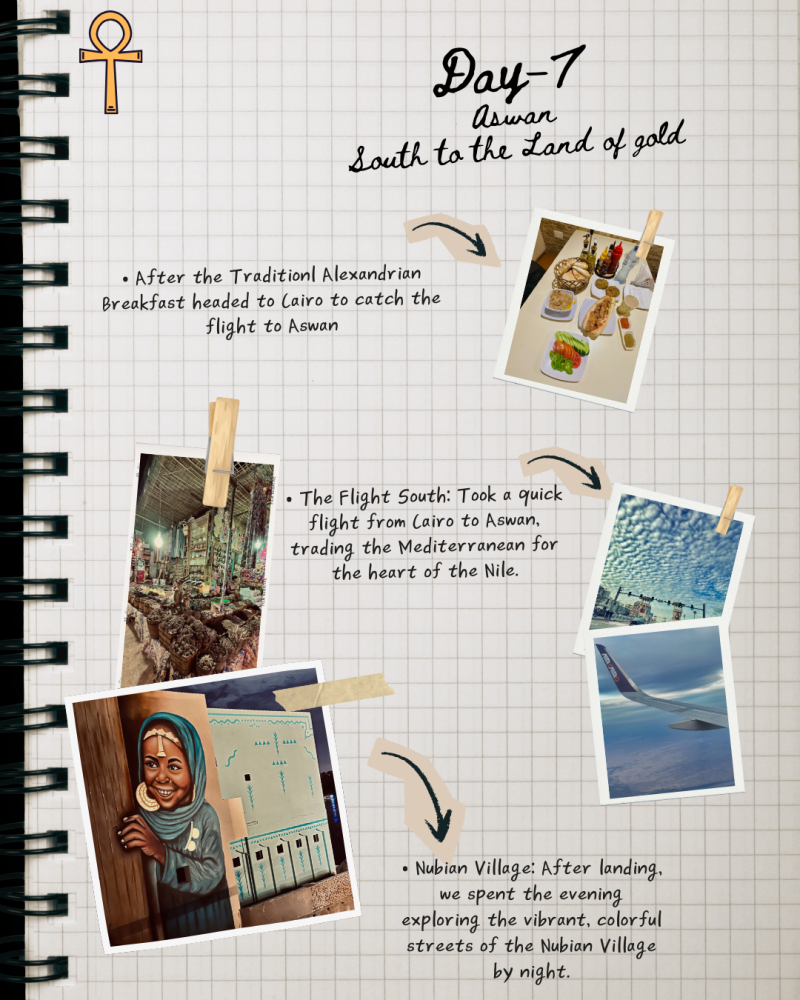 Day-7
Aswan
South to the Land of gold
• After the Traditionl Alexandrian
Breakfast headed to Cairo to catch the
flight to Aswan
• The Flight South: Took a quick
flight from Cairo to Aswan,
trading the Mediterranean for
the heart of the Nile.
• Nubian Village: After landing,
we spent the evening
exploring the vibrant, colorful
streets of the Nubian Village
by night.